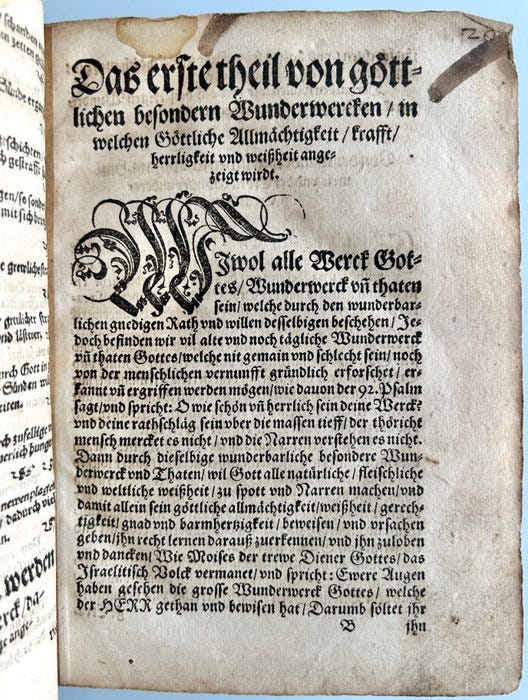 schandern
en zetten
Sünde
geschichten
gestrafft
gen/so sonder
mit sich
grewliche
grewlicher
nd lästerer
urch Gott
Sünden
eiten.
rch zufellige
perlich hunger
285
newen plagen
dadurch
werden
erck/da-
Das erste theil von gött-
lichen besondern Wunderwercken / in
welchen Göttliche Allmächtigkeit / krafft /
herrligkeit vnd weißheit ange-
zeigt wirdt.
WIwol alle Werck Got-
tes / Wunderwerck vñ thaten
sein / welche durch den wunderbar-
lichen gnedigen Rath vnd willen desselbigen beschehen / Je-
doch befinden wir vil alte vnd noch tägliche Wunderwerck
vñ thaten Gottes / welche nit gemain vnd schlecht sein / noch
von der menschlichen vernunfft gründlich erforschet / er-
kannt vñ ergriffen werden mögen / wie dauon der 92. Psalm
sagt / vnd spricht: O wie schön vñ herrlich sein deine Wercke
vnd deine rathschläg sein vber die massen tieff / der thöricht
mensch mercket es nicht / vnd die Narren verstehen es nicht.
Dann durch dieselbige wunderbarliche besondere Wun-
derwerck vnd Thaten / wil Gott alle natürliche / fleischliche
vnd weltliche weißheit / zu spott vnd Narren machen / vnd
damit allein sein göttliche allmächtigkeit / weißheit / gerech-
tigkeit / gnad vnd barmhertzigkeit / beweisen / vnd vrsachen
geben / jhn recht lernen darauß zuerkennen / vnd jhn zuloben
vnd dancken / Wie Moises der trewe Diener Gottes / das
Israelitisch Volck vermanet / vnd spricht: Ewere Augen
haben gesehen die grosse Wunderwerck Gottes / welche
der HERR gethan vnd bewisen hat / Darumb söltet jhr
B jhn